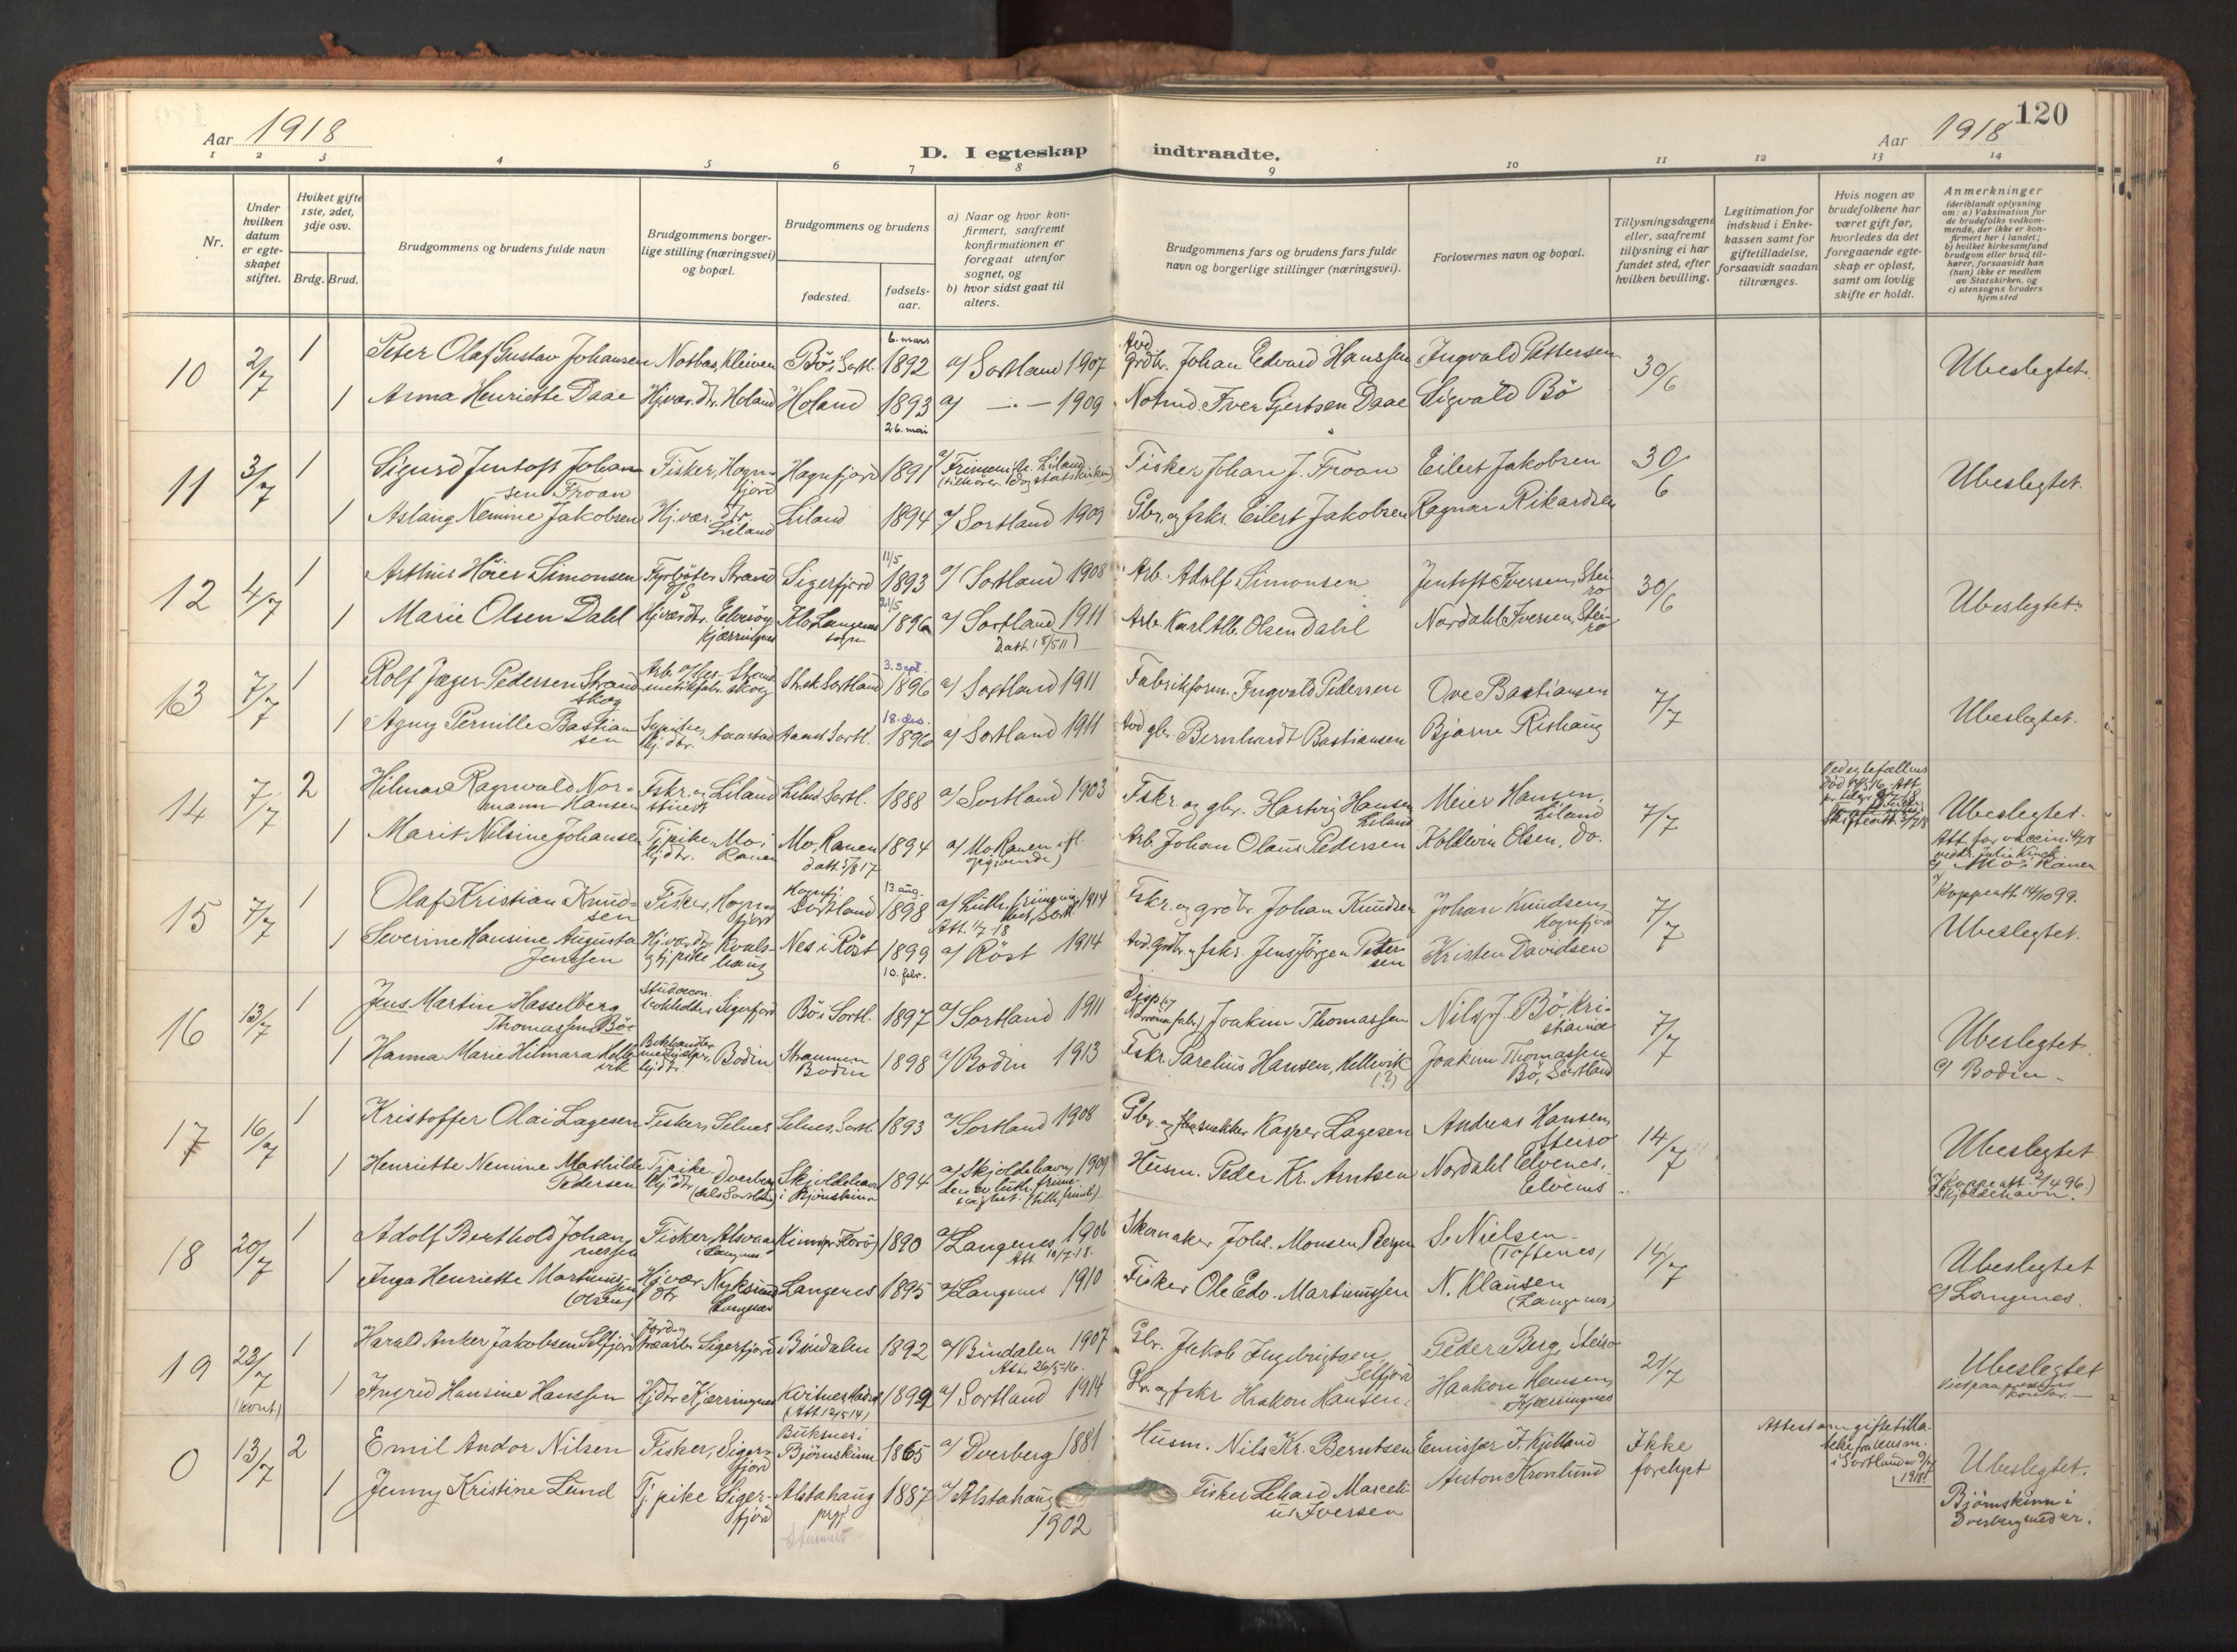 Aar 1918
D. I egteskap
indtraadte.
Aar 1918
120
1 2 3 4 5 6 7 8 9 10 11 12 13 14
Nr.
Under hvilken datum er egteskapet stiftet.
Hvilket gifte 1ste, 2det, 3dje osv.
Brdg. Brud.
Brudgommens og brudens fulde navn
Brudgommens borgerlige stilling (næringsvei) og bopæl.
Brudgommens og brudens
fødested.
fødselsaar.
a) Naar og hvor konfirmert, saafremt konfirmationen er foregaat utenfor sognet, og
b) hvor sidst gaat til alters.
Brudgommens fars og brudens fars fulde navn og borgerlige stillinger (næringsvei).
Forlovernes navn og bopæl.
Tillysningsdagene eller, saafremt tillysning ei har fundet sted, efter hvilken bevilling.
Legitimation for indskud i Enkekassen samt for giftetilladelse, forsaavidt saadan tiltrænges.
Hvis nogen av brudefolkene har været gift før, hvorledes da det foregaaende egteskap er opløst, samt om lovlig skifte er holdt.
Anmerkninger
(deriblandt oplysning om: a) Vaksination for de brudefolks vedkommende, der ikke er konfirmert her i landet; b) hvilket kirkesamfund brudgom eller brud tilhører, forsaavidt han (hun) ikke er medlem av Statskirken, og c) utensogns bruders hjemsted
10 2/7 1 Peter Olaf Gustav Johansen Notbas, Kleiven Bö i Sortl. 6. mars 1892 a/ Sortland 1907 Grdbr. Johan Edvard Hanssen Ingvald Pettersen 30/6 Ubeslegtet.
1 Anna Henriette Daae Hj.vær. dtr. Holand Holand 1893 26. mai a/ —"— 1909 Iver Gjertsen Daae Sigvald Bö
11 3/7 1 Sigurd Jentoft Johansen Troan Fisker, Hognfjord Hognfjord 1891 Fisker Johan J. Troan Eilert Jakobsen 30/6 Ubeslegtet.
1 Aslaug Nemine Jakobsen Hj.vær. dtr. Liland Liland 1894 a/ Sortland 1909 Gbr. og fskr. Eilert Jakobsen Ragnar Rikardsen
12 4/7 1 Arthur Höier Simonsen Fyrböter Strand Sigerfjord 11/5 1893 a/ Sortland 1908 Arb. Adolf Simonsen Jentoft Iversen, Steiro 30/6 Ubeslegtet.
1 Marie Olsen Dahl Hj.vær. dtr. Kjærringnes Langenes sogn 1896 a/ Sortland 1911 Arb. Karl Alb. Olsen Dahl Nordahl Iversen, Steiro
13 7/7 1 Rolf Jæger Pedersen Strandskog Sortland 3. sept. 1896 a/ Sortland 1911 Fabrikform. Ingvald Pedersen Ove Bastiansen 7/7 Ubeslegtet.
1 Agny Pernille Bastiansen 18. des. 1896 a/ Sortland 1911 Bernhardt Bastiansen Bjarne Rishaug
14 7/7 2 Hilmar Ragnvald Normann Hansen Fskr. og Liland Liland Sortl. 1888 a/ Sortland 1903 Fskr. og gbr. Hartvig Hansen Liland Meier Hansen, Liland 7/7 Ubeslegtet.
1 Marit Nilsine Johansen Tj.pike, Mo i Ranen Mo, Ranen 1894 a/ Mo, Ranen Arb. Johan Olaus Pedersen Koldevin Olsen, do.
15 7/7 1 Olaf Kristian Knudsen Fisker, Hognfjord Hognfj. Sortland 13 aug. 1898 1914 Fskr. og grdbr. Johan Knudsen Johan Knudsen, Hognfjord 7/7 Koppeatt. 14/10 99. Ubeslegtet.
1 Severine Hansine Augusta Jensen Nes i Röst 1899 10. febr. a/ Röst 1914 Jens Jörgen Petersen Kristen Davidsen
16 13/7 1 Jens Martin Hasselberg Thomassen Böe Sigerfjord Bö i Sortl. 1897 a/ Sortland 1911 Joakim Thomassen Nils J. Bö, Kristiania 7/7 Ubeslegtet.
1 Hanna Marie Hilmara Hellevik Bodin Straumen Bodin 1898 a/ Bodin 1913 Fskr. Sarelius Hansen, Hellevik (?) Joakim Thomassen Bö, Sortland c/ Bodin
17 16/7 1 Kristoffer Olai Lagesen Fisker, Selnes Selnes, Sortl. 1893 a/ Sortland 1908 Kasper Lagesen Andreas Hansen, Steiro 14/7 Ubeslegtet
1 Henriette Nemine Mathilde Pedersen Tj.pike Dverberg Skjoldehavn i Bjönskinn 1894 a/ Skjoldehavn 1909 Husm. Peder Kr. Arntsen Nordahl Elvenes, Elvenes
18 20/7 1 Adolf Berthold Johannessen Fisker, Alsvaag i Langenes 1890 a/ Langenes 1906 Att. 10/7-18. Skomaker Johs. Monsen, Bergen S. Nielsen (Toftenes) 14/7 Ubeslegtet
1 Inga Henriette Martinussen (Olsen) Hj.vær. dtr. Nyksund Langenes Langenes 1895 a/ Langenes 1910 Fisker Ole Edv. Martinussen N. Klausen (Langenes) c/ Langenes.
19 23/7 (Kont.) 1 Harald Anker Jakobsen Selfjord Sigerfjord Bindalen 1892 a/ Bindalen 1907 Att. 26/5-16. Gbr. Jakob Ingebrigtsen, Selfjord Peder Berg, Steiro 21/7 Ubeslegtet
1 Ingrid Hansine Hanssen Hj.dtr. Kjærringnes 1899 a/ Sortland 1914 Gbr. og fskr Haakon Hansen. Haakon Hansen, Kjærringnes
0 13/7 2 Emil Andor Nilsen Fisker, Sigerfjord Buksnes i Björnskinn 1865 a/ Dverberg 1881 Husm. Nils Kr. Berntsen Emissær J. Kjelland Ikke forelyst Ubeslegtet.
1 Jenny Kristine Lund Tj.pike Sigerfjord Alstahaug prgj. 1887 a/ Alstahaug 1902 Fisker Marcelius Iversen Anton Kronlund Björnskinn i Dverberg